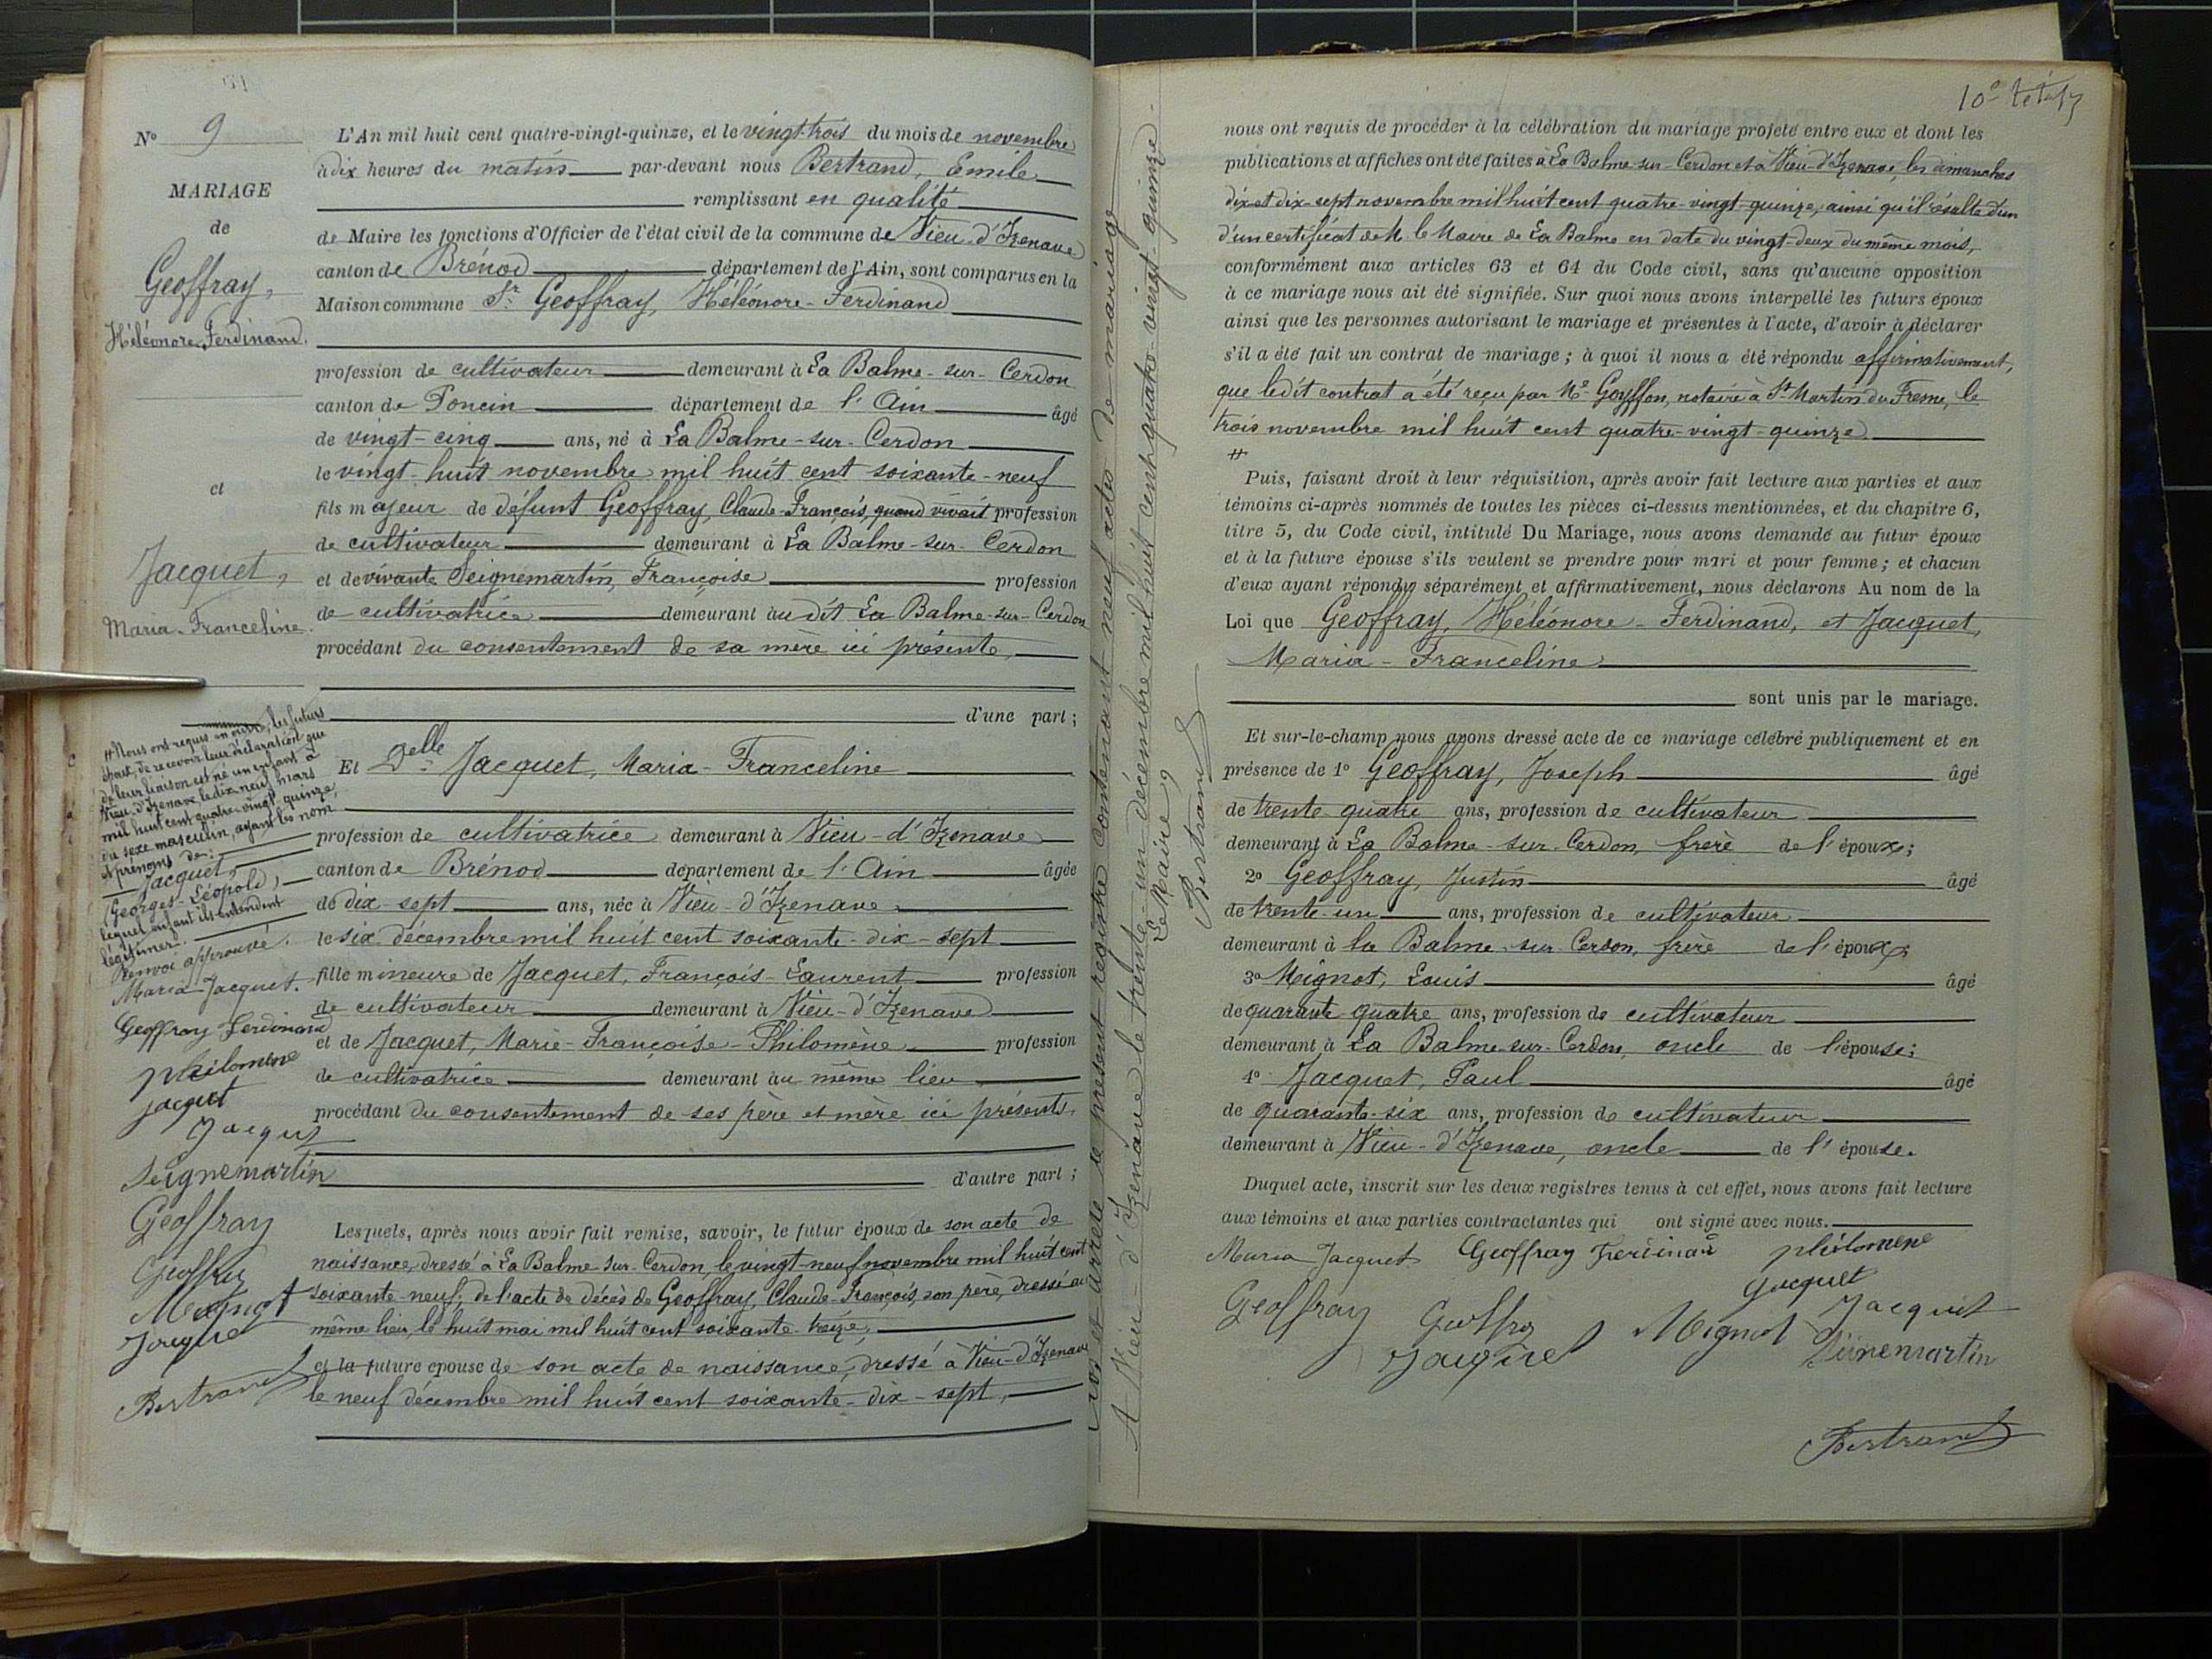 N° 9
MARIAGE
de
Geoffray,
Héléonore Ferdinand.
et
Jacquet,
Maria-Franceline.
# Nous ont requis en outre, les futurs
époux, de recevoir leur déclaration que
de leur liaison est né un enfant à
Vieu-d'Izenave le dix neuf mars
mil huit cent quatre-vingt quinze,
du sexe masculin, ayant les nom
et prénoms de:
Jacquet,
(Georges-Léopold),
lequel enfant ils entendent
légitimer.
Renvoi approuvé.
Maria Jacquet.
Geoffray Ferdinand
philomene
jacquet
Jacquet
Seignemartin
Geoffray
Geoffray
Mignot
Jacquet
Bertrand
L'An mil huit cent quatre-vingt-quinze, et le vingt-trois du mois de novembre
à dix heures du matin par-devant nous Bertrand, Emile
remplissant en qualité
de Maire les fonctions d'Officier de l'état civil de la commune de Vieu-d'Izenave
canton de Brénod département de l'Ain, sont comparus en la
Maison commune Sr. Geoffray, Héléonore-Ferdinand
profession de cultivateur demeurant à La Balme-sur-Cerdon
canton de Poncin département de l'Ain âgé
de vingt-cinq ans, né à La Balme-sur-Cerdon
le vingt-huit novembre mil huit cent soixante-neuf
fils majeur de défunt Geoffray, Claude-François, quand vivait profession
de cultivateur demeurant à La Balme-sur-Cerdon
et de vivante Seignemartin, Françoise profession
de cultivatrice demeurant au dit La Balme-sur-Cerdon
procédant du consentement de sa mère ici présente,
d'une part;
Et Delle Jacquet, Maria-Franceline
profession de cultivatrice demeurant à Vieu-d'Izenave
canton de Brénod département de l'Ain âgée
de dix-sept ans, née à Vieu-d'Izenave
le six décembre mil huit cent soixante-dix-sept
fille mineure de Jacquet, François-Laurent profession
de cultivateur demeurant à Vieu-d'Izenave
et de Jacquet, Marie-Françoise-Philomène profession
de cultivatrice demeurant au même lieu
procédant du consentement de ses père et mère ici présents,
d'autre part;
Lesquels, après nous avoir fait remise, savoir, le futur époux de son acte de
naissance, dressé à La Balme-sur-Cerdon, le vingt-neuf novembre mil huit cent
soixante-neuf, de l'acte de décès de Geoffray, Claude-François, son père, dressé au
même lieu le huit mai mil huit cent soixante-treize,
et la future épouse de son acte de naissance, dressé à Vieu-d'Izenave
le neuf décembre mil huit cent soixante-dix-sept,
Clos et arrêté le présent registre contenant neuf actes de mariage
A Vieu-d'Izenave le trente-un décembre mil huit cent quatre-vingt-quinze.
Le Maire,
Bertrand
nous ont requis de procéder à la célébration du mariage projeté entre eux et dont les
publications et affiches ont été faites à La Balme-sur-Cerdon et à Vieu-d'Izenave, les dimanches
dix et dix-sept novembre mil huit cent quatre-vingt-quinze, ainsi qu'il résulte d'un
d'un certificat de M. le Maire de La Balme en date du vingt-deux du même mois,
conformément aux articles 63 et 64 du Code civil, sans qu'aucune opposition
à ce mariage nous ait été signifiée. Sur quoi nous avons interpellé les futurs époux
ainsi que les personnes autorisant le mariage et présentes à l'acte, d'avoir à déclarer
s'il a été fait un contrat de mariage; à quoi il nous a été répondu affirmativement,
que ledit contrat a été reçu par Me Goyffon, notaire à St-Martin du Fresne, le
trois novembre mil huit cent quatre-vingt-quinze.
#
Puis, faisant droit à leur réquisition, après avoir fait lecture aux parties et aux
témoins ci-après nommés de toutes les pièces ci-dessus mentionnées, et du chapitre 6,
titre 5, du Code civil, intitulé Du Mariage, nous avons demandé au futur époux
et à la future épouse s'ils veulent se prendre pour mari et pour femme; et chacun
d'eux ayant répondu séparément et affirmativement, nous déclarons Au nom de la
Loi que Geoffray, Héléonore-Ferdinand, et Jacquet,
Maria-Franceline
sont unis par le mariage.
Et sur-le-champ nous avons dressé acte de ce mariage célébré publiquement et en
présence de 1° Geoffray, Joseph âgé
de trente quatre ans, profession de cultivateur
demeurant à La Balme-sur-Cerdon, frère de l'époux;
2° Geoffray, Justin âgé
de trente-un ans, profession de cultivateur
demeurant à la Balme-sur-Cerdon, frère de l'époux;
3° Mignot, Louis âgé
de quarante quatre ans, profession de cultivateur
demeurant à La Balme-sur-Cerdon, oncle de l'épouse;
4° Jacquet, Paul âgé
de quarante-six ans, profession de cultivateur
demeurant à Vieu-d'Izenave, oncle de l'épouse.
Duquel acte, inscrit sur les deux registres tenus à cet effet, nous avons fait lecture
aux témoins et aux parties contractantes qui ont signé avec nous.
Maria Jacquet Geoffray Ferdinand philomene
jacquet
Geoffray Geoffray Mignot Jacquet
Jacquet Seignemartin
Bertrand